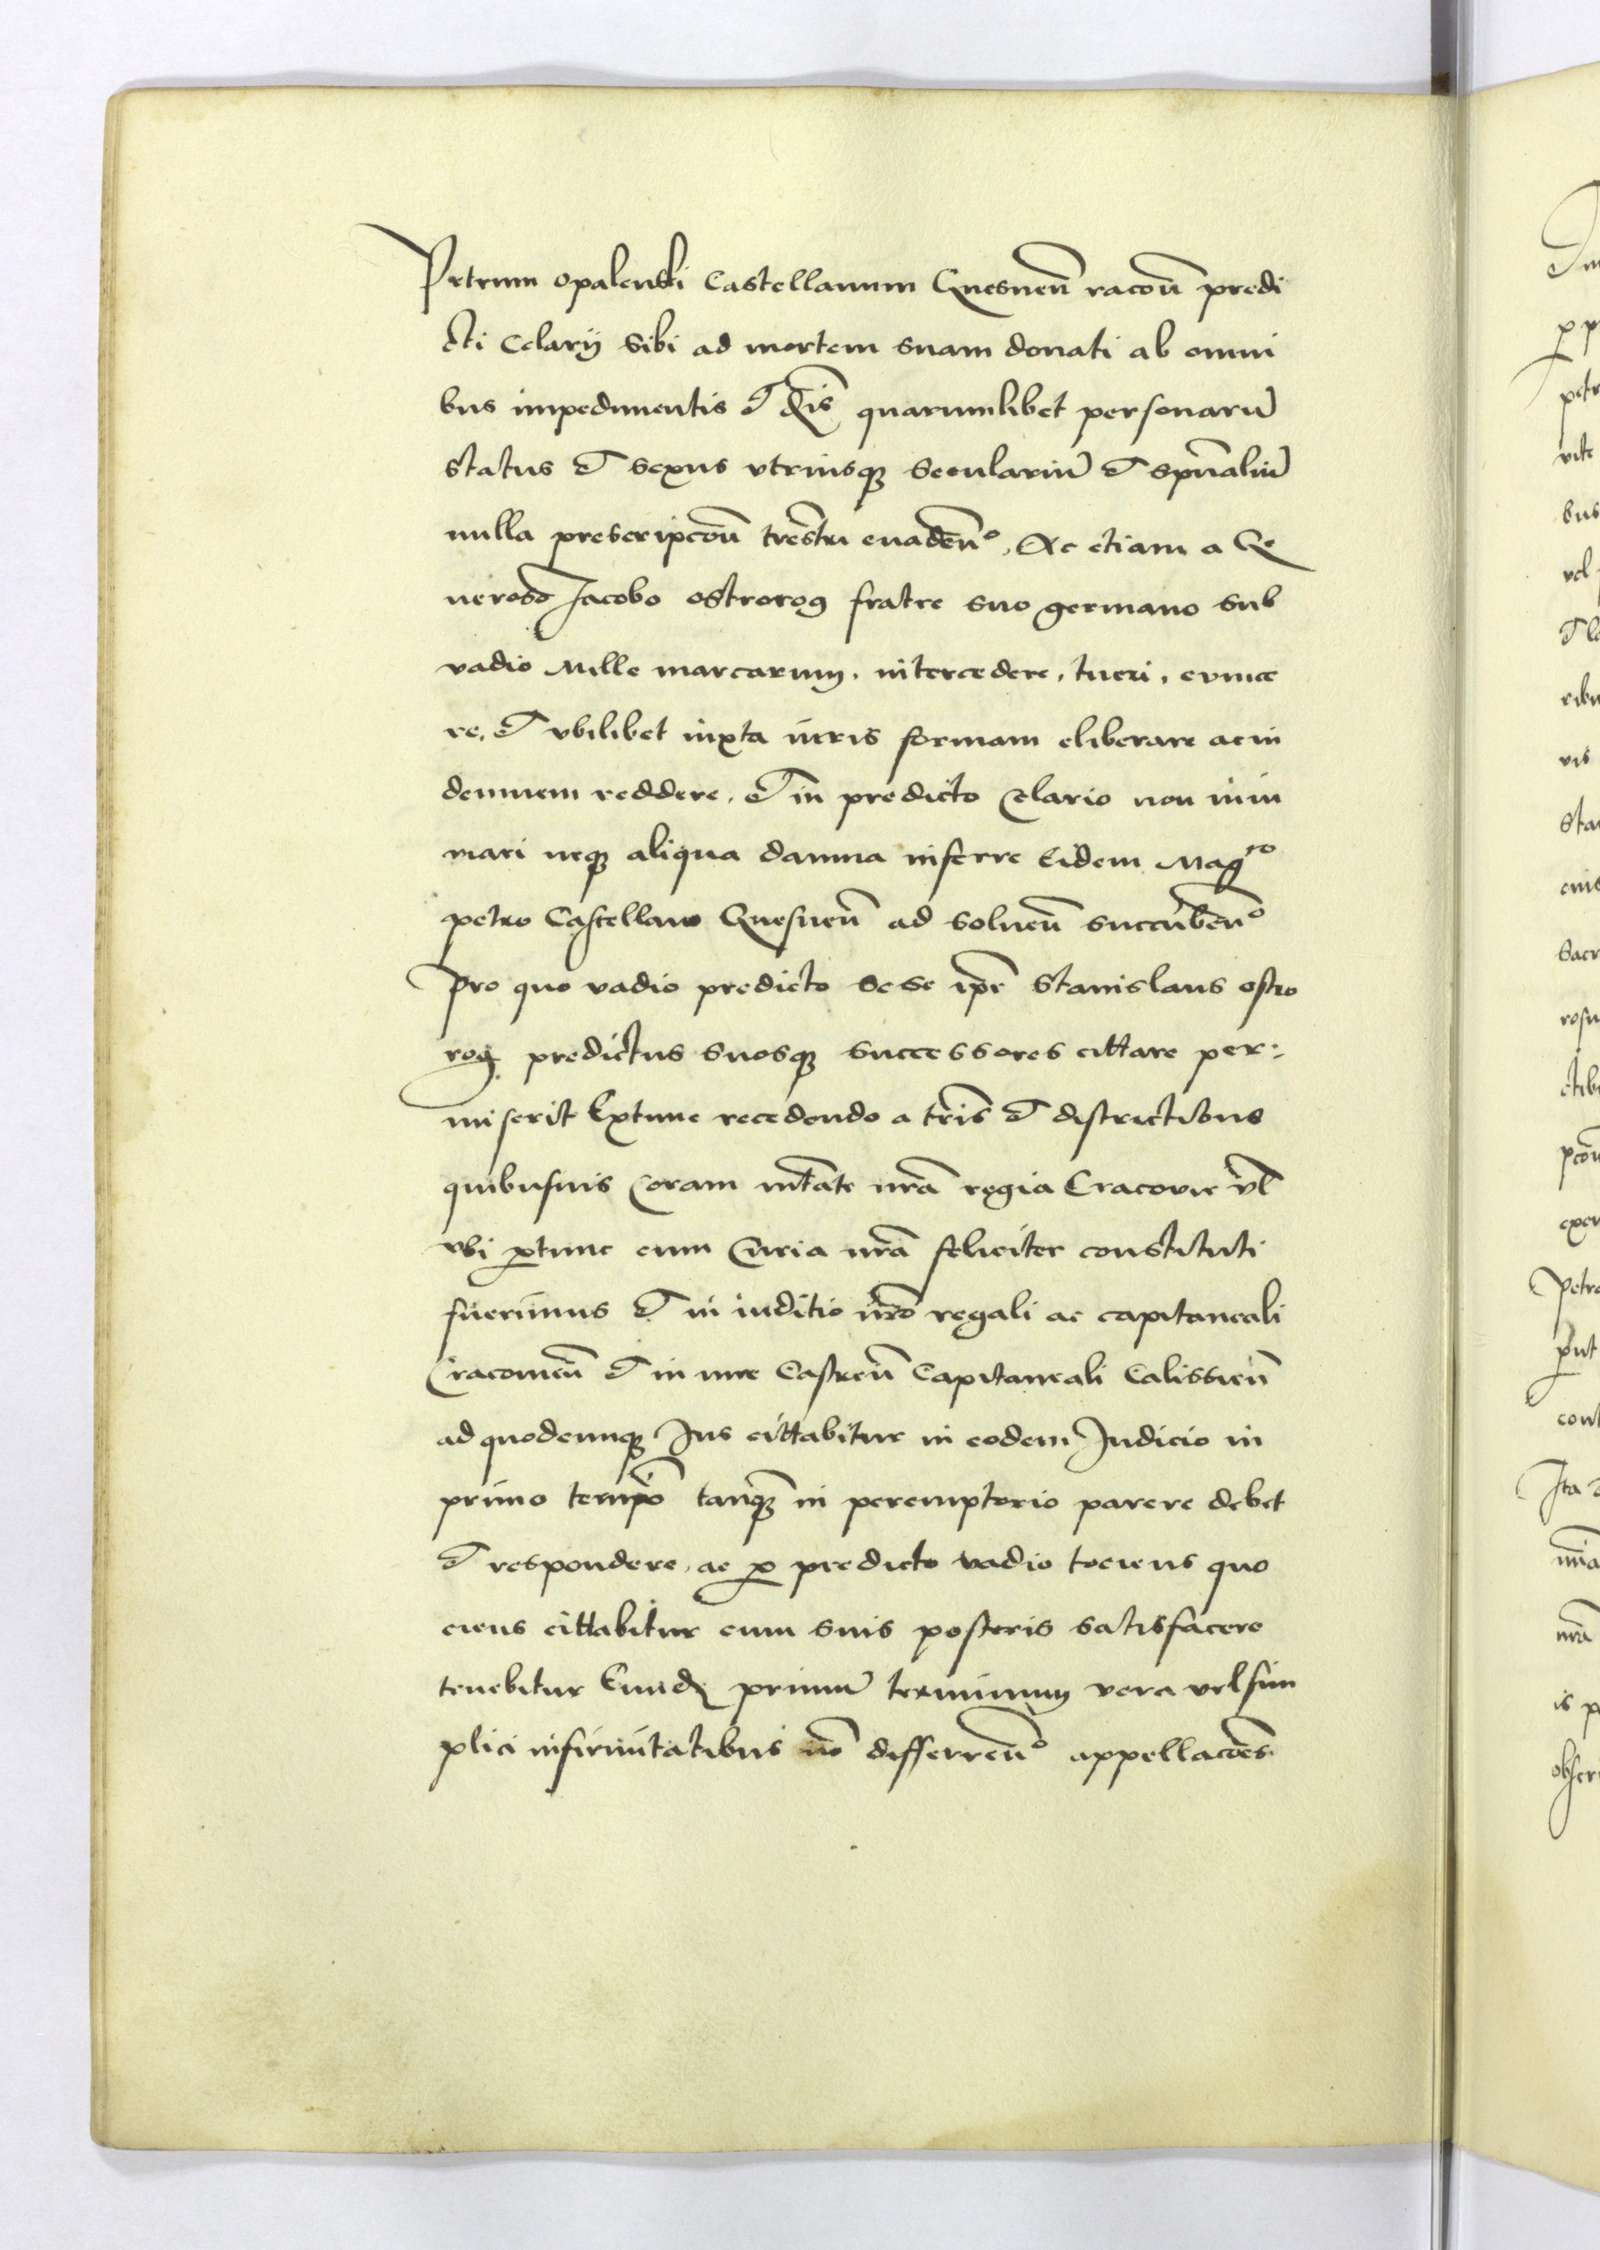 Petrum opalenski Castellanum Gnesneñ racoñ predi
cti Celarÿ sibi ad mortem suam donati ab omni
bus impedimentis et quarumlibet personarũ
status et sexus vtriusqȝ seculariũ et spũaliũ
nulla prescripcoñ trestri euadeñº, Ac etiam a Ge
neroso Jacobo ostrorog fratre suo germano sub
vadio Mille marcarum, intercedere, tueri, euince
re, et vbilibet iuxta iuris formam eliberare ac in
demnem reddere, et in predicto Celario non inin
mari neqȝ aliqua damna inferre Eidem Magco
petro Castellano Gnesneñ ad solueñ succũbeñº
Pro quo vadio predicto se se ipẽ Stanislaus ostro
rog predictus suosqȝ successores cittare per:
miserit Extunc recedendo a tris et districtibus
quibusuis Coram mtãte nrã regia Cracouie vl
vbi ꝑtunc cum Curia nrã feliciter constituti
fuerimus et in iuditio nrõ regali ac capitaneali
Cracouieñ et in iure Castreñ Capitaneali Calissieñ
ad quodcunqȝ Jus cittabitur in eodem Judicio in
primo termĩo tanqȝ in peremptorio parere debet
et respondere, ac ꝓ predicto vadio tociens quo
ciens cittabitur cum suis posteris satisfacere
tenebitur Eundȝ primũ terminum vera vel sim
plici infirmitatibus nõ differreñº appellacões